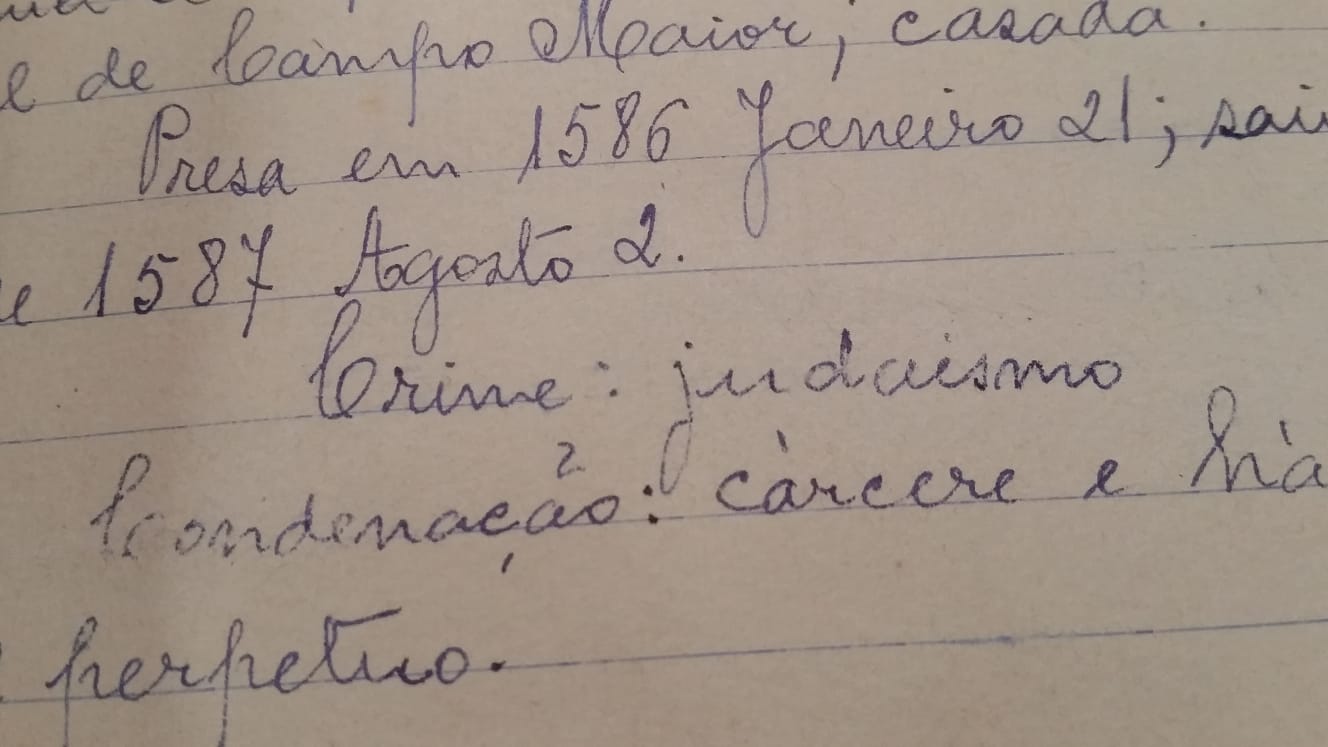 e de Campo Maior; casada.
Presa em 1586 Janeiro 21; sai
e 1587 Agosto 2.
Crime: judaismo
Condenação: càrcere e hà
perpetuo.